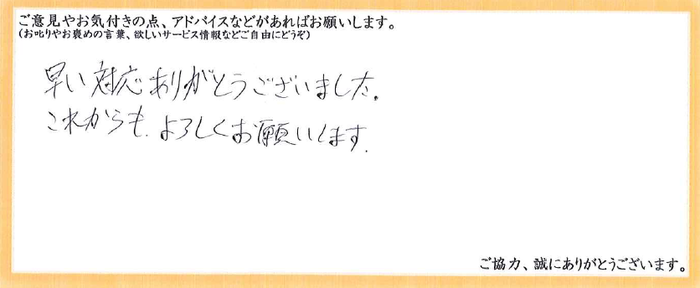 ご意見やお気付きの点、アドバイスなどがあればお願いします。
(お叱りやお褒めの言葉、欲しいサービス情報などご自由にどうぞ)
早い対応ありがとうございました。
これからも、よろしくお願いします.
ご協力、誠にありがとうございます。